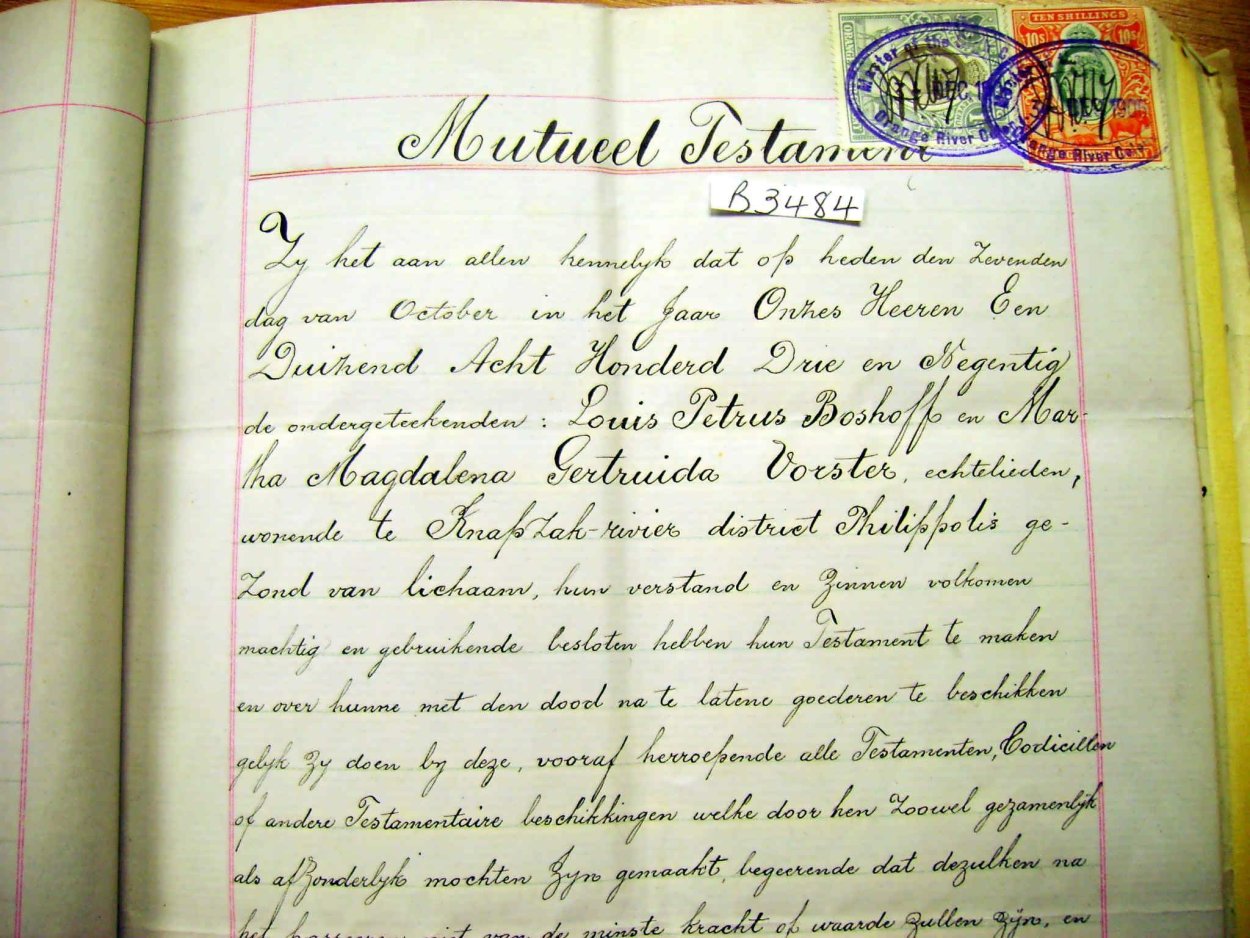 TEN SHILLINGS
10s 10s
Master of the
DEC 1
Orange River Co
DEC 1905
Orange River Co
Mutueel Testament
B3484
Zy het aan allen kennelyk dat op heden den Zevenden
dag van October in het Jaar Onzes Heeren Een
Duizend Acht Honderd Drie en Negentig
de ondergeteekenden : Louis Petrus Boshoff en Mar-
tha Magdalena Gertruida Vorster, echtelieden,
wonende te KnapZak-rivier district Philippolis ge-
Zond van lichaam, hun verstand en Zinnen volkomen
machtig en gebruikende besloten hebben hun Testament te maken
en over hunne met den dood na te latene goederen te beschikken
gelyk Zy doen by deze, vooraf herroepende alle Testamenten, Codicillen
of andere Testamentaire beschikkingen welke door hen Zoowel gezamenlyk
als afZonderlyk mochten Zyn gemaakt, begeerende dat dezulken na
het niet van de minste kracht of waarde Zullen Zyn, en